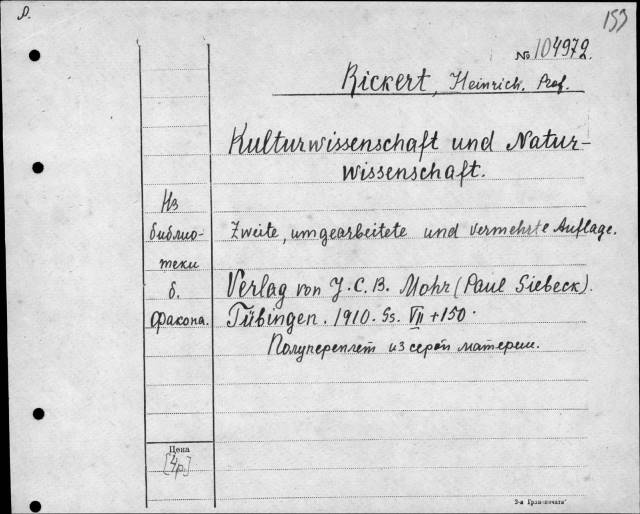 153
№ 104972.
Rickert, Heinrich, Prof.
Kulturwissenschaft und Natur-
wissenschaft.
Из
библио-
теки
б.
Факона.
Zweite, umgearbeitete und vermehrte Auflage.
Verlag von J. C. B. Mohr (Paul Siebeck).
Tübingen. 1910. Ss. VII + 150.
Полупереплет из серой материи.
Цена
[4р.]